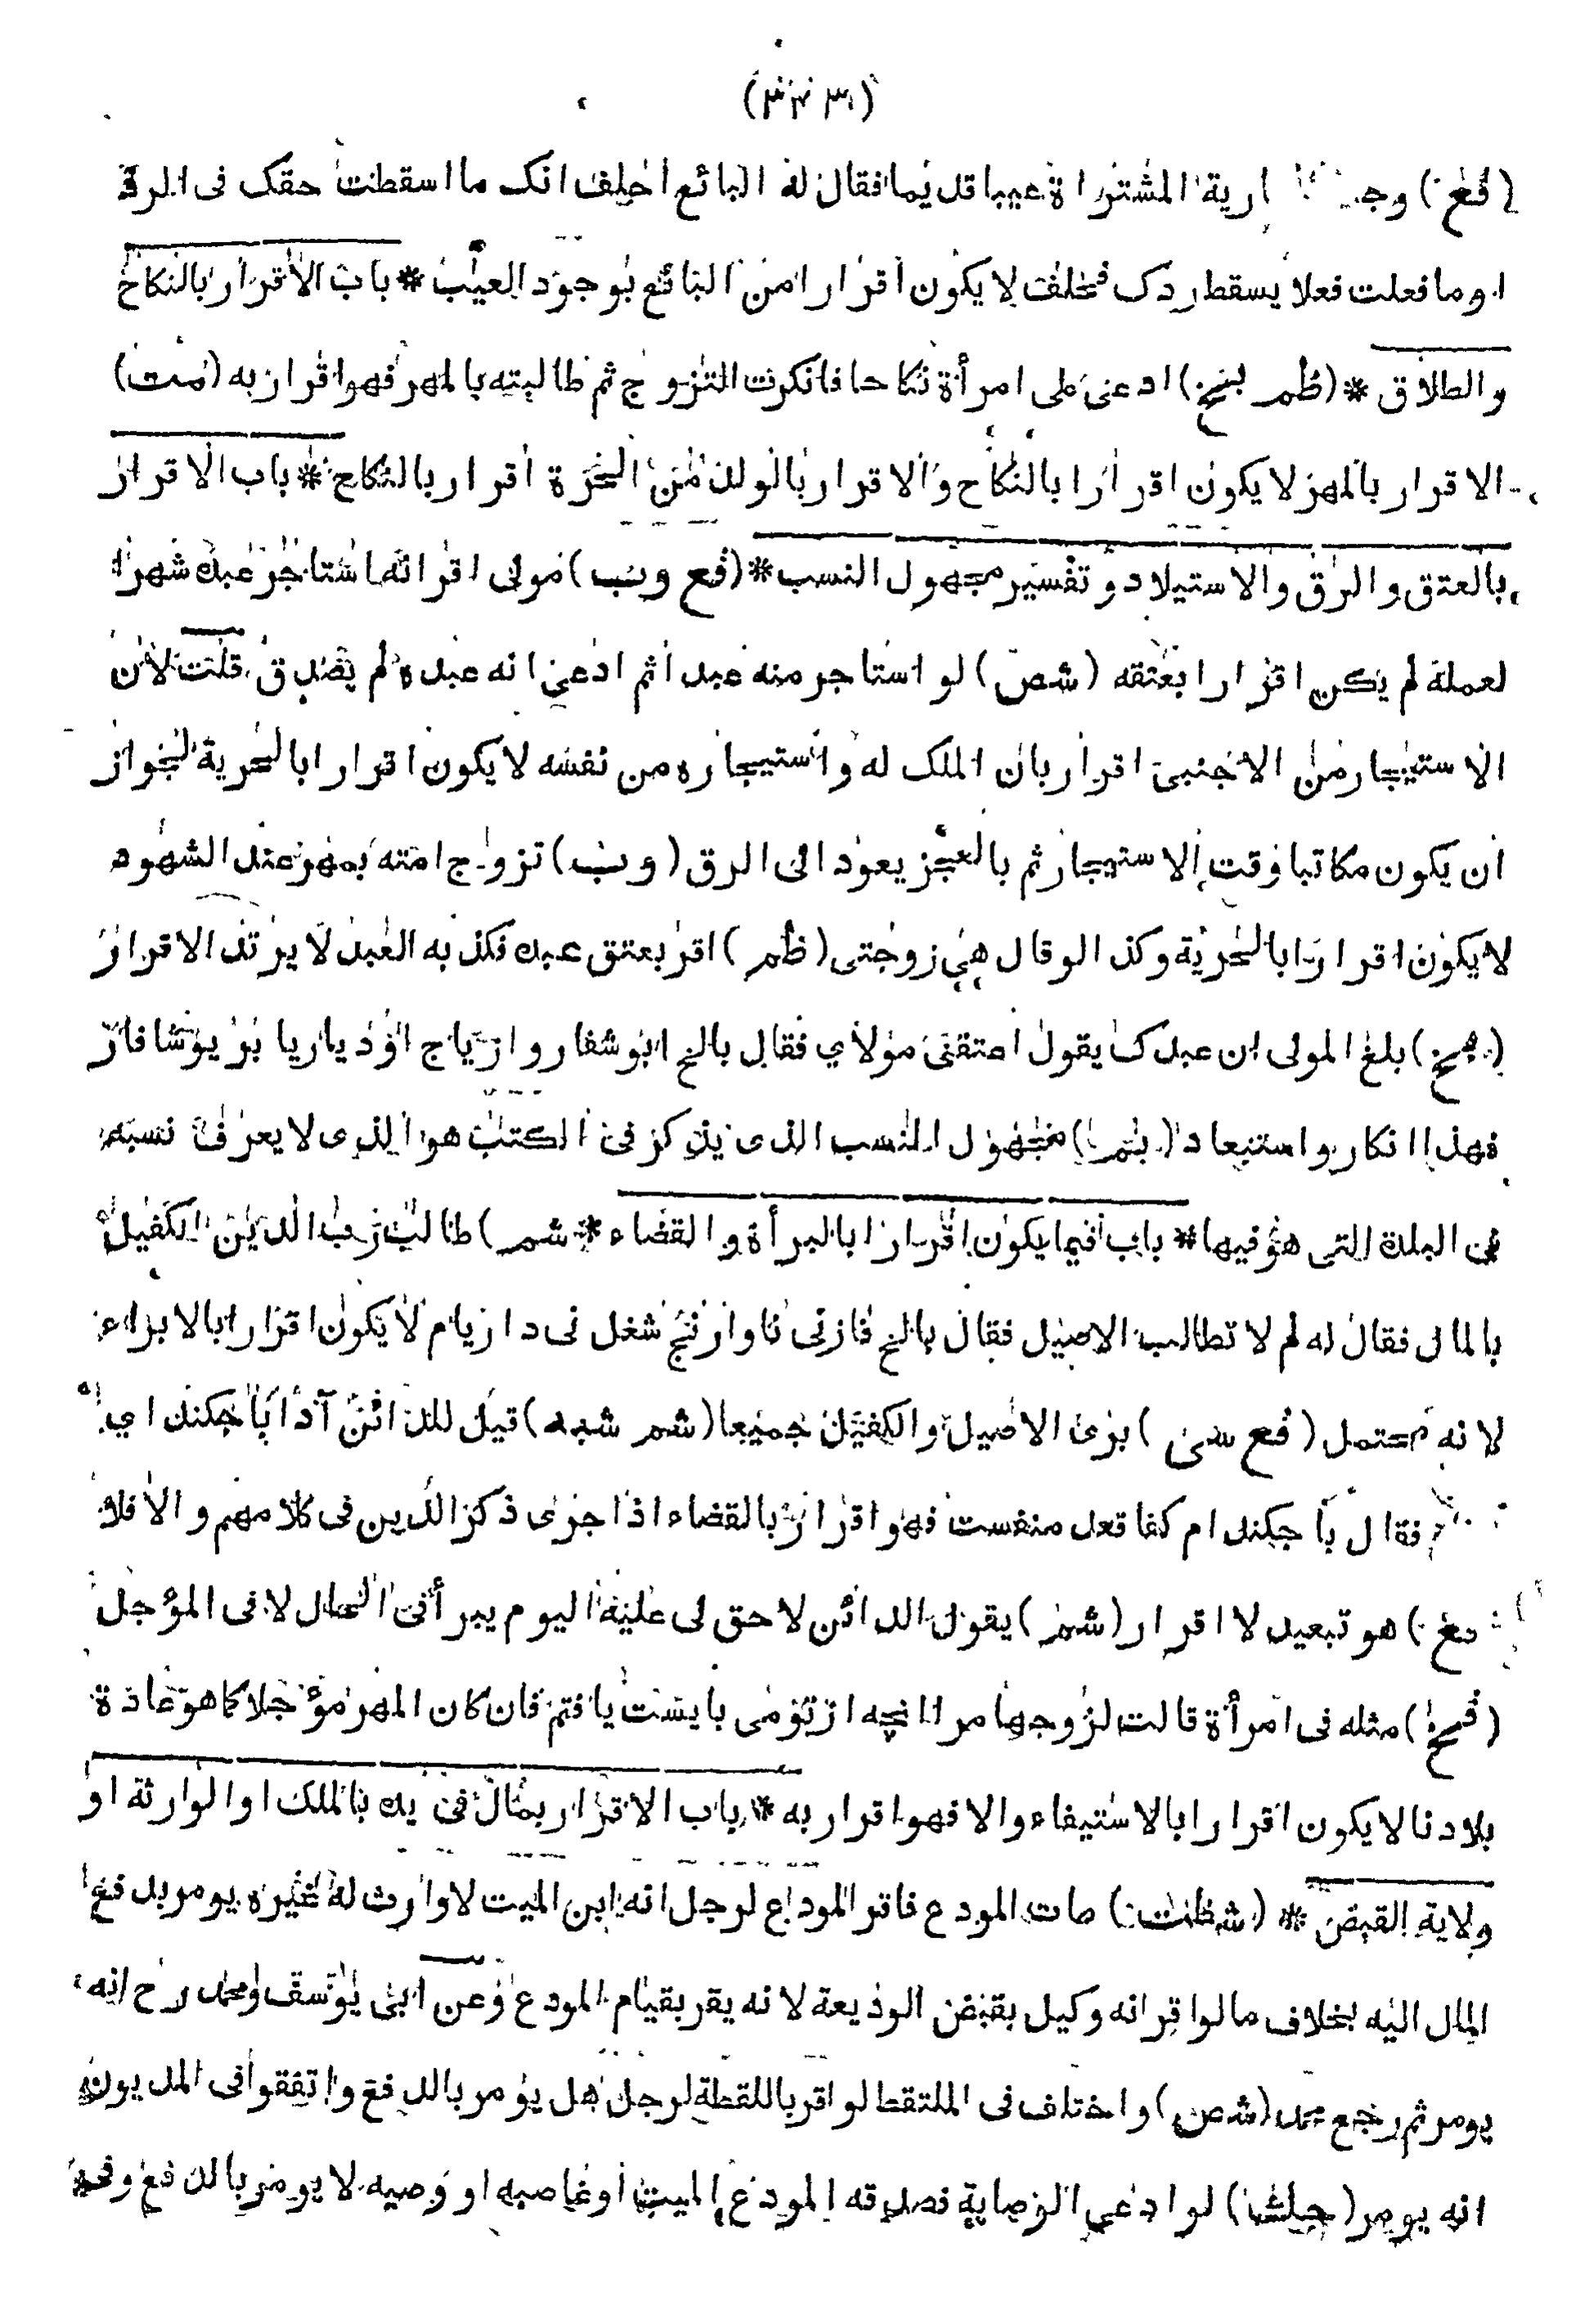 (فع) المشتراة عيبا قديما فقال له البائع احلف انك ما اسقطت حقك فى الرد
او ما فعلت فعلا يسقط ردك فحلف لا يكون اقرارا من البائع بوجود العيب * باب الاقرار بالنكاح
والطلاق * (ظم بخ) ادعى على امرأة نكاحا فانكرت التزوج ثم طالبته بالمهر فهو اقرار به (مت)
الاقرار بالمهر لا يكون اقرارا بالنكاح والاقرار بالولد من الحرة اقرار بالنكاح * باب الاقرار
بالعتق والرق والاستيلاد وتفسير مجهول النسب * (فع وب) مولى اقر انه استاجر عبده شهرا
لعمله لم يكن اقرارا بعتقه (شص) لو استاجر منه عبدا ثم ادعى انه عبده لم يصدق قلت لان
الاستيجار من الاجنبى اقرار بان الملك له واستيجاره من نفسه لا يكون اقرارا بالحرية لجواز
ان يكون مكاتبا وقت الاستيجار ثم بالعجز يعود الى الرق (وب) تزوج امته بمهر عند الشهود
لا يكون اقرارا بالحرية وكذا لو قال هى زوجتى (ظم) اقر بعتق عبده فكذبه العبد لا يرتد الاقرار
بلغ المولى ان عبدك يقول اعتقنى مولاى فقال بالخ
فهذا انكار واستبعاد (بم) مجهول النسب الذى يذكر فى الكتب هو الذى لا يعرف نسبه
فى البلدة التى هو فيها * باب فيما يكون اقرارا بالبرأة والقضاء * (شم) طالب رب الدين الكفيل
بالمال فقال له لم لا تطالب الاصيل فقال بالخ لا يكون اقرارا بالابراء
لانه محتمل (فع سى) برئ الاصيل والكفيل جميعا (شم شبه) قيل للدائن
فقال فهو اقرار بالقضاء اذا جرى ذكر الدين فى كلامهم والا فلا
هو تبعيد لا اقرار (شم) يقول الدائن لا حق لى عليه اليوم يبرأ فى الحال لا فى المؤجل
مثله فى امرأة قالت لزوجها مرا انچه از تو مى بايست يافتم فان كان المهر مؤجلا كما هو عادة
بلادنا لا يكون اقرارا بالاستيفاء والا فهو اقرار به * باب الاقرار بمال فى يده بالملك او الوارثة او
ولاية القبض * مات المودع فاقر المودع لرجل انه ابن الميت لا وارث له غيره يومر بدفع
المال اليه بخلاف ما لو اقر انه وكيل بقبض الوديعة لانه يقر بقيام المودع وعن ابى يوسف ومحمد رح انه
يومر ثم رجع محمد (شص) واختلف فى الملتقط لو اقر باللقطة لرجل هل يؤمر بالدفع واتفقوا فى المديون
انه يومر لو ادعى الوصاية فصدقه المودع الميت او غاصبه او وصيه لا يومر بالدفع وفى